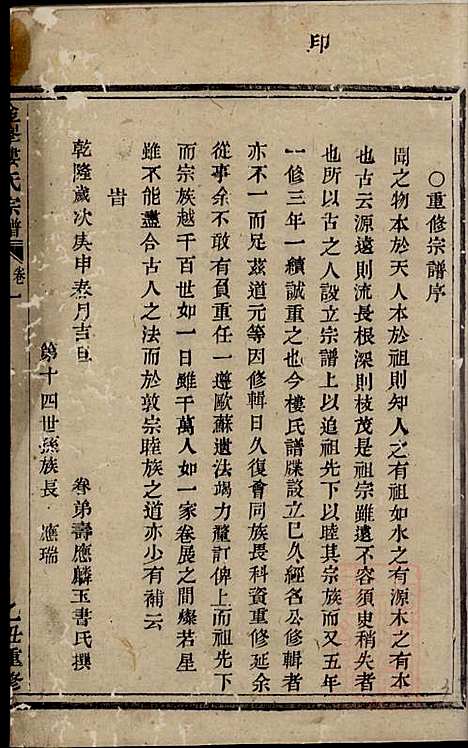 印
○重修宗譜序
聞之物本於天人本於祖則知人之有祖如水之有源木之有本
也古云源遠則流長根深則枝茂是祖宗雖遠不容須臾稍失者
也所以古之人設立宗譜上以追祖先下以睦其宗族而又五年
一修三年一續誠重之也今樓氏譜牒設立已久經名公修輯者
亦不一而足茲道元等因修輯日久復會同族長科資重修延余
從事余不敢有負重任一遵歐蘇遺法竭力釐訂俾上而祖先下
而宗族越千百世如一日雖千萬人如一家卷展之間燦若星
雖不能盡合古人之法而於敦宗睦族之道亦少有補云
旹
乾隆歲次庚申春月吉旦　眷弟壽應麟玉書氏撰
第十四世孫族長　應瑞
樓氏宗譜　卷一　乙丑重修